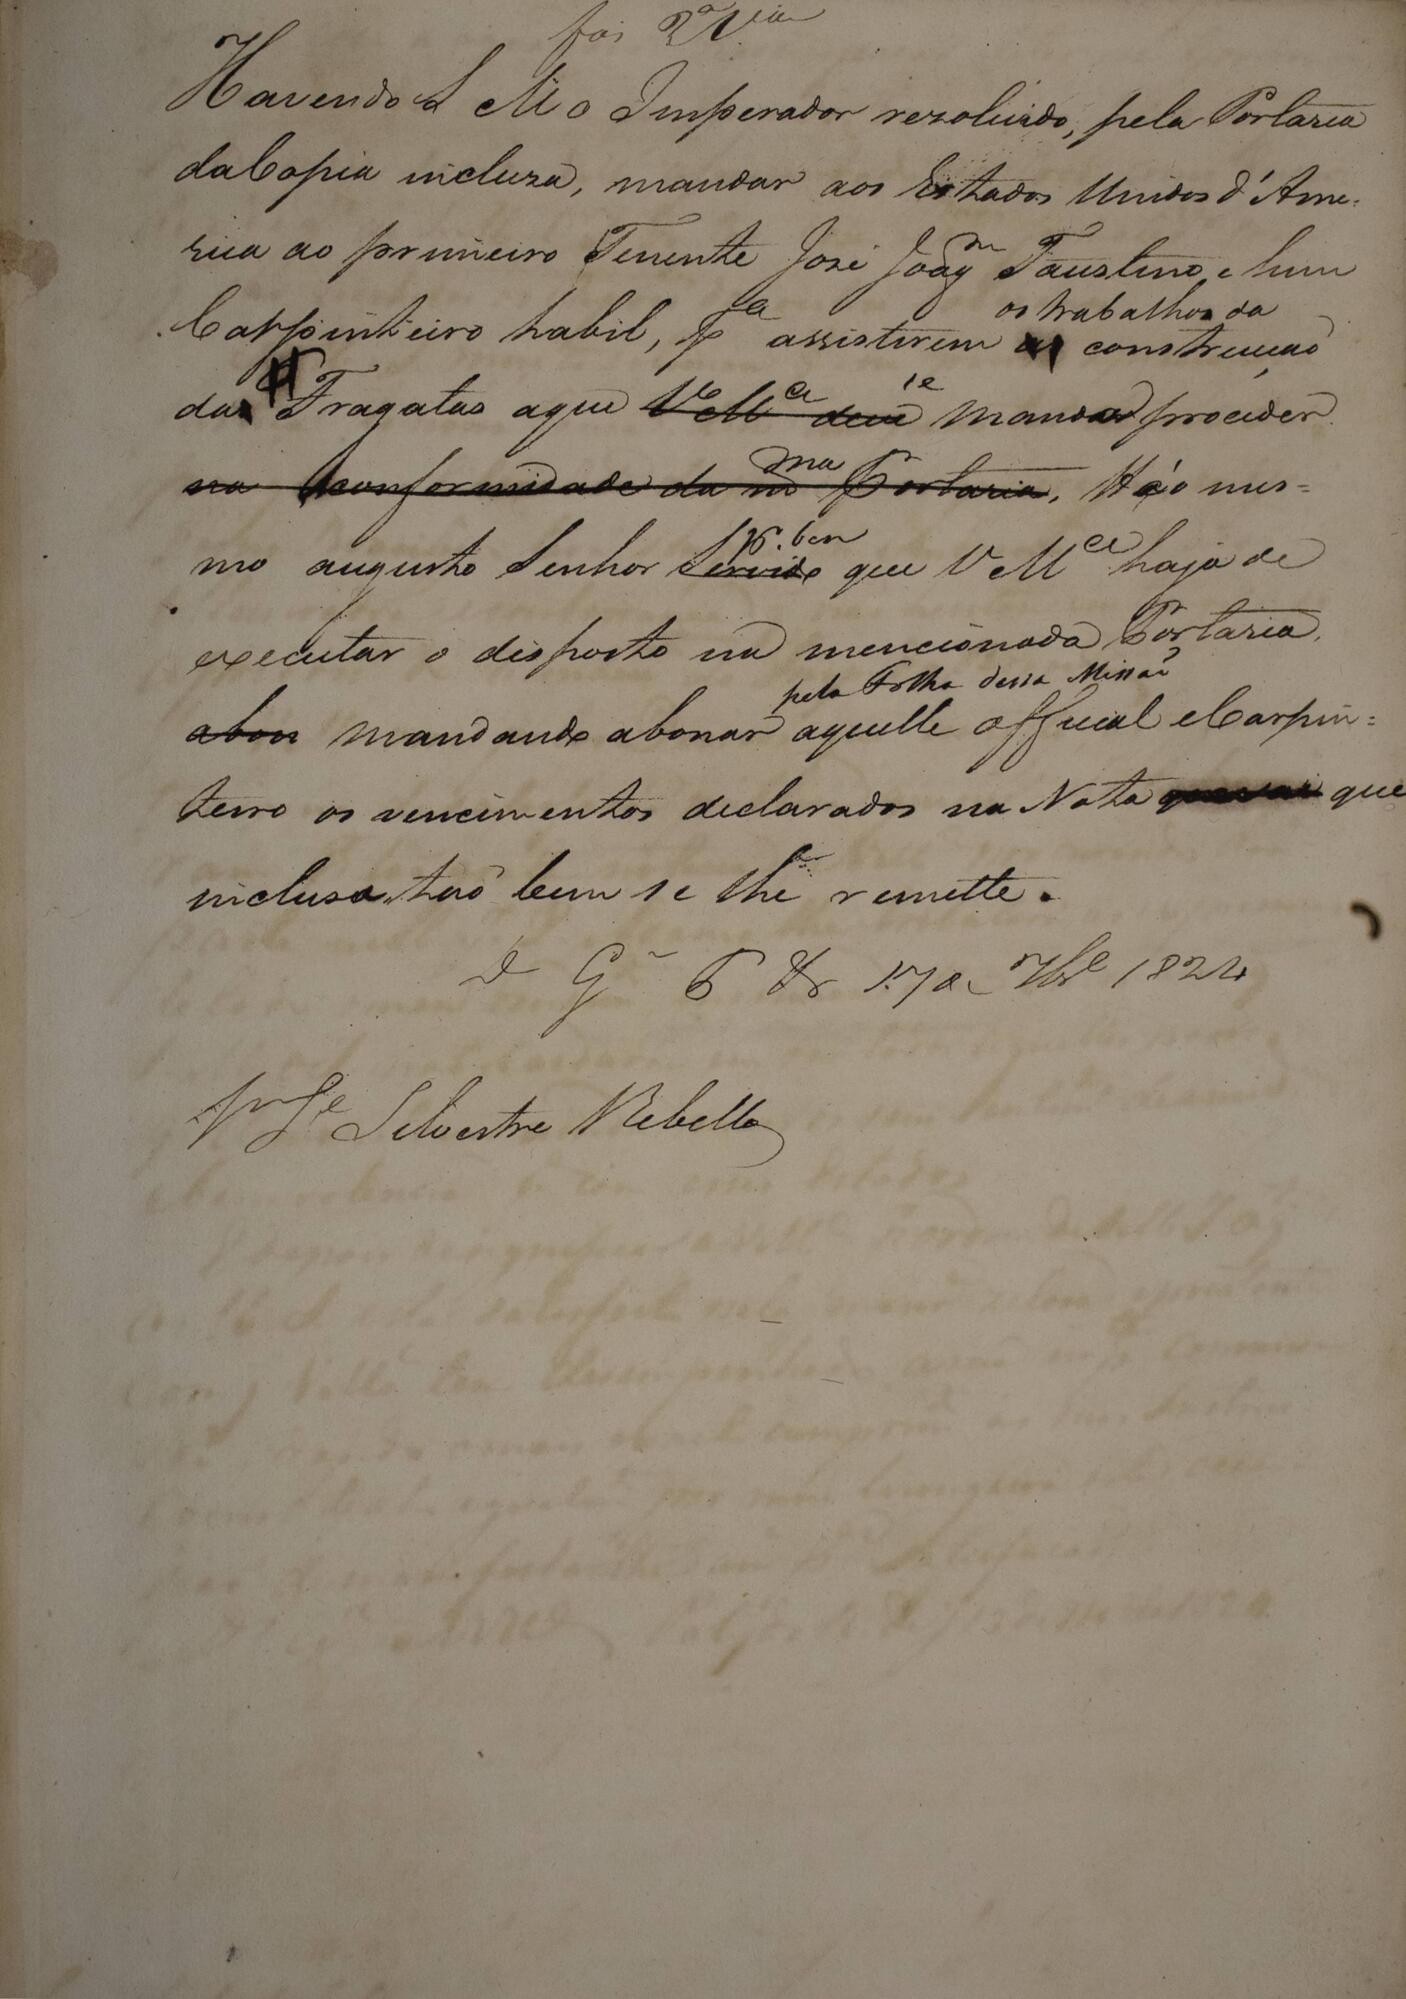 foi 2ª Via
Havendo S M o Imperador rezolvido, pela Portaria
da Copia incluza, mandar aos Estados Unidos d'Ame-
rica ao primeiro Tenente José Joaqm Faustino, e hum
os trabalhos da
Carpinteiro habil, pa assistirem construcçaõ
das Fragatas a que VMce deve mandar proceder
na conformidade da mma Portaria. Há o mes=
mo augusto Senhor Servido por bem que VMce haja de
executar o disposto na mencionada Portaria,
pela Folha dessa Missaõ
abon mandando abonar aquelle official e Carpin=
teiro os vencimentos declarados na Nota que
inclusa taõ bem se lhe remette.
D Ge P 17 de 7bre 1824
Silvestre Rebello